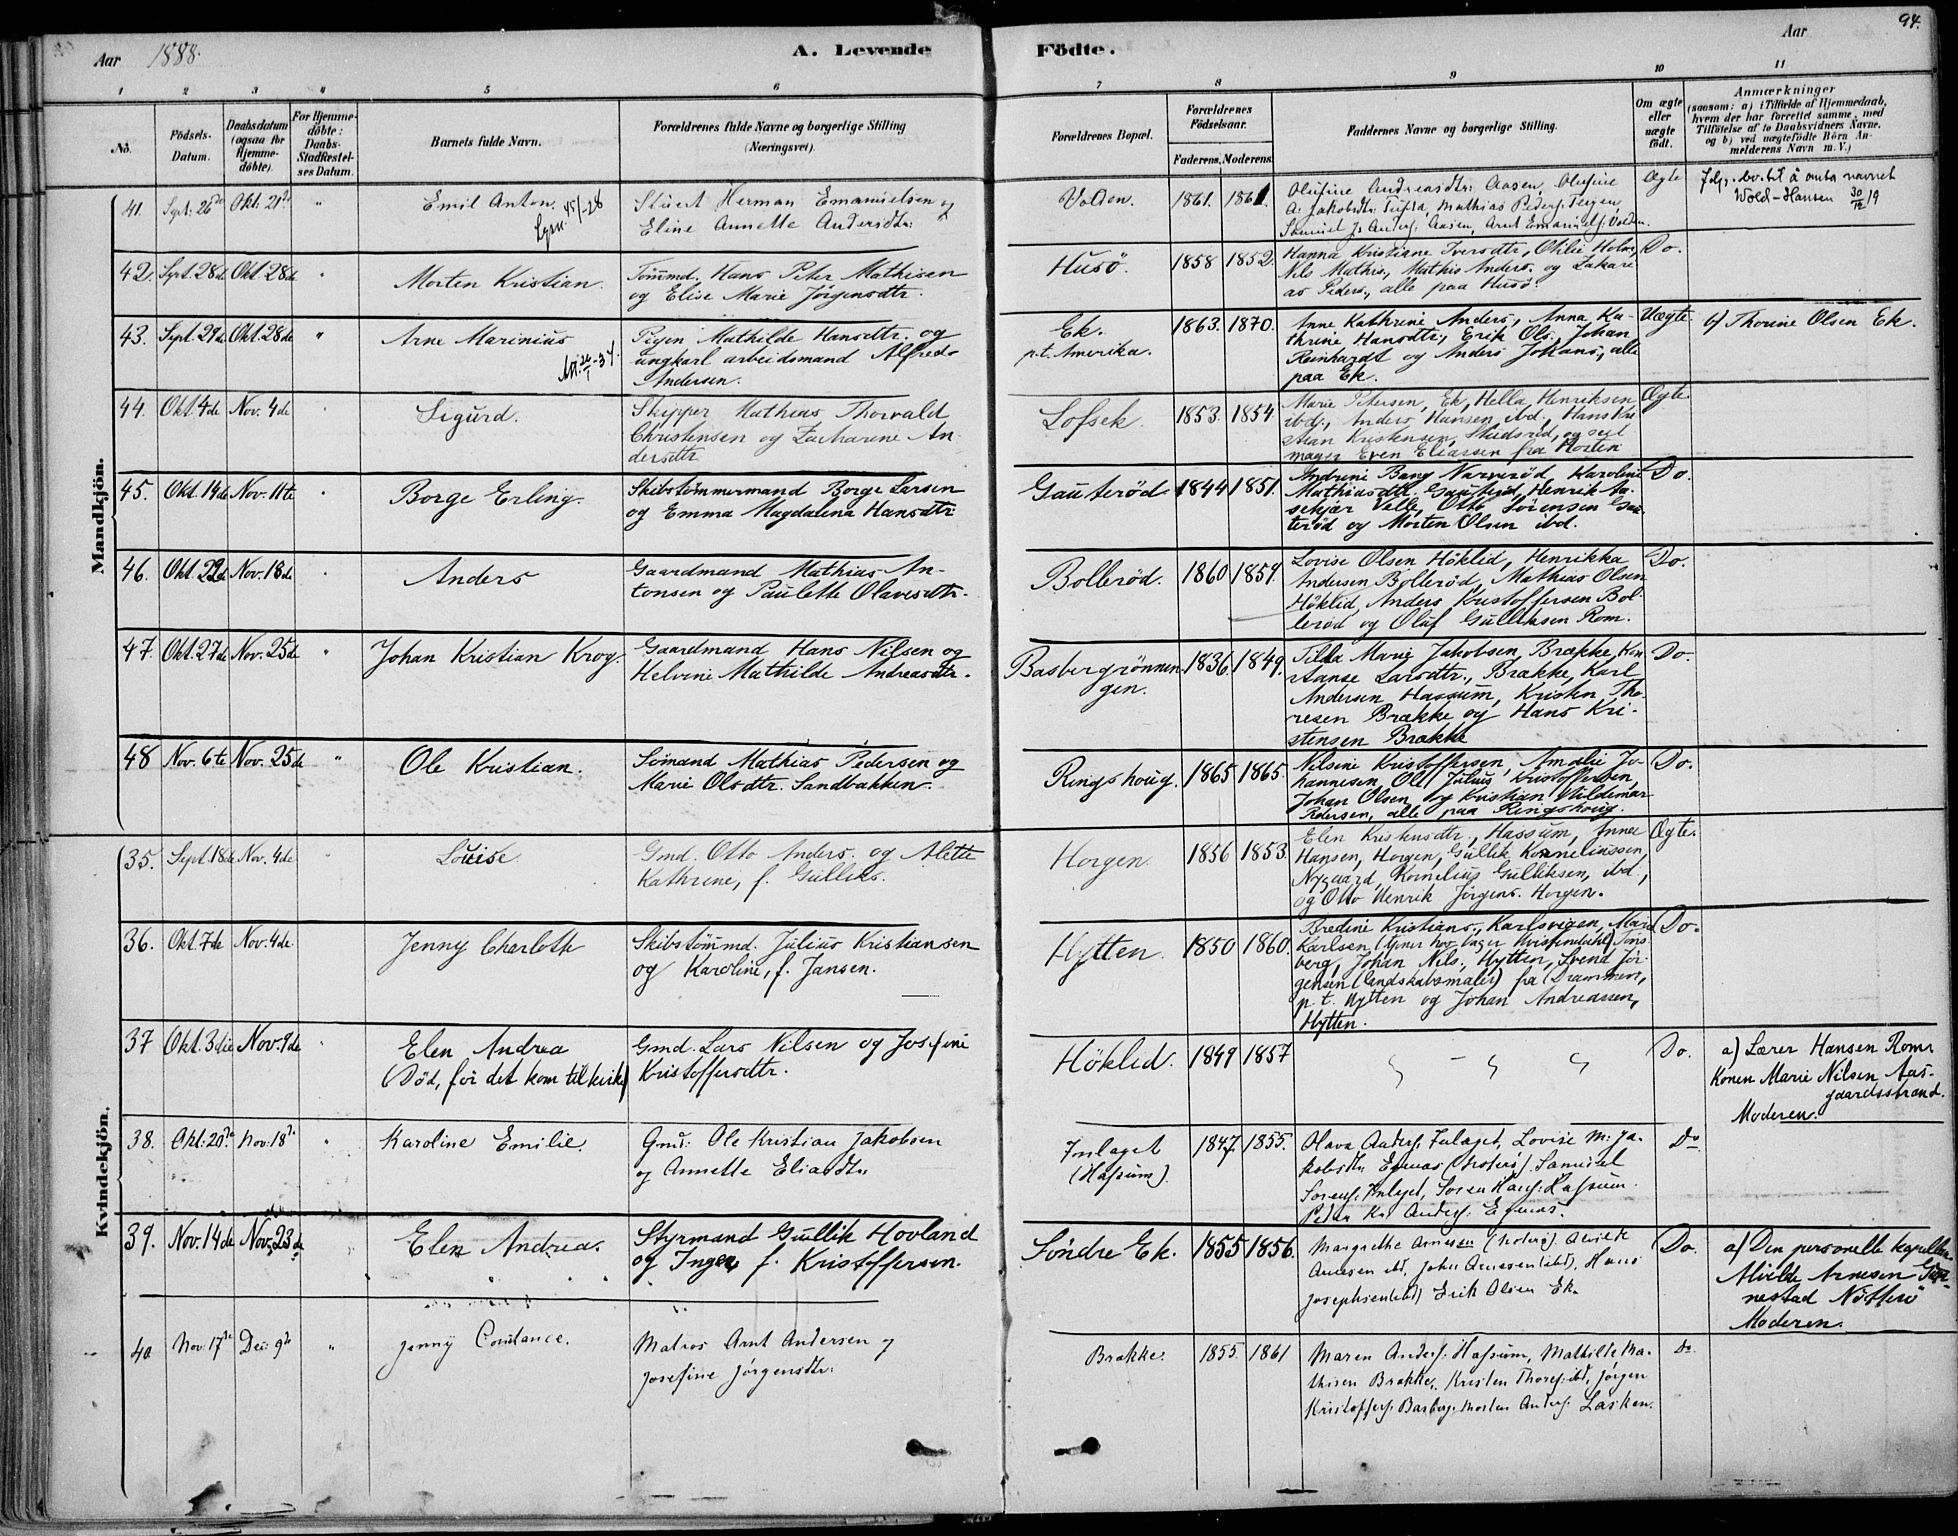 94.
Aar 1888.
A. Levende Födte.
Aar
1 2 3 4 5 6 7 8 9 10 11
No.
Födsels-Datum.
Daabsdatum (ogsaa for Hjemme-döbte).
For Hjemme-döbte: Daabs-Stadfæstelses Datum.
Barnets fulde Navn.
Forældrenes fulde Navne og borgerlige Stilling (Næringsvei).
Forældrenes Bopæl.
Forældrenes Födselsaar.
Faderens. Moderens.
Faddernes Navne og borgerlige Stilling.
Om ægte eller uægte födt.
Anmærkninger
(saasom: a) i Tilfælde af Hjemmedaab,
hvem der har forrettet samme, med
Tilföielse af to Daabsvidners Navne,
og b) ved uægtefödte Börn An-
melderens Navn m. V.)
Mandkjön.
41. Spt: 26de Okt: 21de " Emil Anton. 45/-28
Stuert Herman Emanuelsen og
Eline Annette Andersdtr:
Volden. 1861. 1861.
Olufine Andreasdtr: Aasen, Olufine
A. Jakobsdtr: Tufta, Mathias Peders: Teigen,
Samuel Js. Anders: Aasen, Arnt Emanuels: Volden.
Ægte
Følg. bev. til å anta navnet
Wold-Hansen 30/12 19
42. Sept. 28de Okt. 28de " Morten Kristian.
Tömmd. Hans Peter Mathisen
og Elise Marie Jörgensdtr.
Husö. 1858 1852.
Hanna Kristiane Iversdtr, Otilie Holm,
Nils Mathis., Mathis Anders. og Zakari
as Peders., alle paa Husö.
Do.
43. Sept. 29de Okt. 28de " Arne Marinius
Pigen Mathilde Hansdtr. og
ungkarl arbeidsmand Alfred
Andersen.
Ek.
p.t. Amerika.
1863. 1870.
Anne Kathrine Anders., Anna Ka-
thrine Hansdtr., Erik Ols., Johan
Reinhardt og Anders Johans., alle
paa Ek.
Uægte. b) Thorine Olsen Ek.
44. Okt 4de Nov. 4de Sigurd.
Skipper Mathias Thorvald
Christensen og Zacharine An-
dersdtr
Lofsek. 1853. 1854
Marie Petersen, Ek, Hella Henriksen
ibd., Anders Hansen, ibd., Hans Kri
stian Kristensen, Studsrød, og seil
mager Even Eliassen fra Horten
Ægte
45. Okt. 14de Nov. 11te Borge Erling.
Skibstömmermand Borge Larsen
og Emma Magdalena Hansdtr
Gauteröd 1844 1851.
Andrine Bang Narveröd, Karoline
Mathiasdtr. Gauteröd, Henrik Aa-
sekjær Velle, Otto Sörensen Gau
teröd og Morten Olsen ibd.
Do.
46. Okt. 22de Nov. 18de Anders
Gaardmand Mathias An-
tonsen og Paulette Olavesdtr.
Bolleröd. 1860 1859.
Lovise Olsen Höklid, Henrikka
Andersen Bolleröd, Mathias Olsen
Höklid, Anders Kristoffersen Bol-
leröd og Oluf Gulliksen Rom.
Do.
47. Okt. 27de Nov. 25de " Johan Kristian Krog.
Gaardmand Hans Nilsen og
Helvine Mathilde Andreasdtr.
Basbergrönnen
gen.
1836 1849.
Tilda Marie Jakobsen, Brække, Kon
stanse Larsdtr., Brække, Karl
Andersen Hassum, Kristen Tho-
resen Brække og Hans Kri-
stensen Brække
Do.
48 Nov. 6te Nov. 25de " Ole Kristian.
Sömand Mathias Pedersen og
Marie Olsdtr. Sandbakken.
Ringshoug. 1865 1865.
Nilsine Kristoffersen, Amalie Jo-
hannesen, Ole Julius Kristoffersen,
Johan Olsen og Kristian Wildemar
Pedersen, alle paa Ringshoug.
Do.
Kvindekjön.
35. Sept 18de Nov. 4de Louise.
Gmd. Otto Anders. og Alette
Kathrine, f. Gulliks.
Horgen. 1856 1853.
Elen Kristensdtr., Hassum, Anne
Hansen, Horgen, Gullik Korneliussen,
Nygaard, Kornelius Gulliksen, ibd.,
og Otto Henrik Jörgens. Horgen.
Ægte.
36. Okt. 7de Nov. 4de. Jenny Charlotte
Skibstömmd. Julius Kristiansen
og Karoline, f. Jansen.
Hytten. 1850 1860.
Bredine Kristians., Karlsvigen, Marie
Karlsen (tjener hos bager Kristendahl) Töns
berg, Johan Nils., Hytten, Svend Jör-
gensen (landskabsmaler) fra Drammen,
p. t. Hytten og Johan Andreassen,
Hytten.
Do.
37 Okt. 3die Nov. 9de Elen Andrea
(Död, för det kom til kirke)
Gmd. Lars Nilsen og Josefine
Kristoffersdtr.
Höklid. 1849 1857
Do.
a) Lærer Hansen Rom,
Konen Marie Nilsen Aas-
gaardsstrand.
Moderen.
38. Okt: 20de Nov: 18de " Karoline Emilie.
Gmd: Ole Kristian Jakobsen
og Annette Eliasdtr.
Inlaget
(Hafsum).
1847. 1855.
Olava Anders: Inlaget, Lovise M: Ja-
kobsdtr. Egenæs (Nøterø). Samuel
Sørens: Inlaget, Søren Hans: Hafsum.
Peder Kr. Anders: Egenæs.
Do
39. Nov. 14de Nov. 23de " Elen Andrea.
Styrmand Gullik Hovland
og Inger, f. Kristoffersen.
Söndre Ek. 1855 1856.
Margrethe Arnesen (Nøterø)
Arnesen ibd, John Arnesen (ibd), Hans
Josephsen (ibd) Erik Olsen Ek.
Do.
a) Den personelle kapellan
Alvilde Arnesen
nestad Nötterö
Moderen.
40 Nov: 17de Dec: 9de " Jenny Constance.
Matros Arnt Andersen og
Josefine Jørgensdtr:
Brakke. 1855. 1861
Maren Anders: Hafsum, Mathilde Ma-
thisen Brakke, Kristen Thores: ibd, Jørgen
Kristoffers: Basberg. Morten Anders: Lasken.
Do.